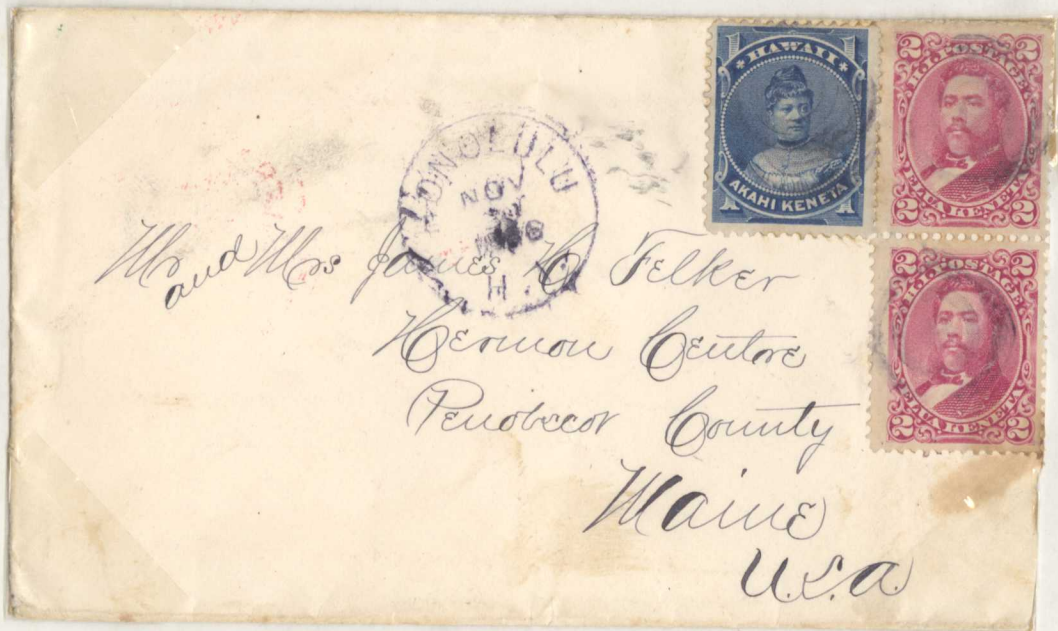 HAWAII
1 1
AKAHI KENETA
2 2
H.I. POSTAGE
ELUA KENETA
2 2
2 2
H.I. POSTAGE
ELUA KENETA
2 2
HONOLULU
NOV
H.I.
Mr and Mrs James H. Felker
Hermon Centre
Penobscot County
Maine
U.S.A.